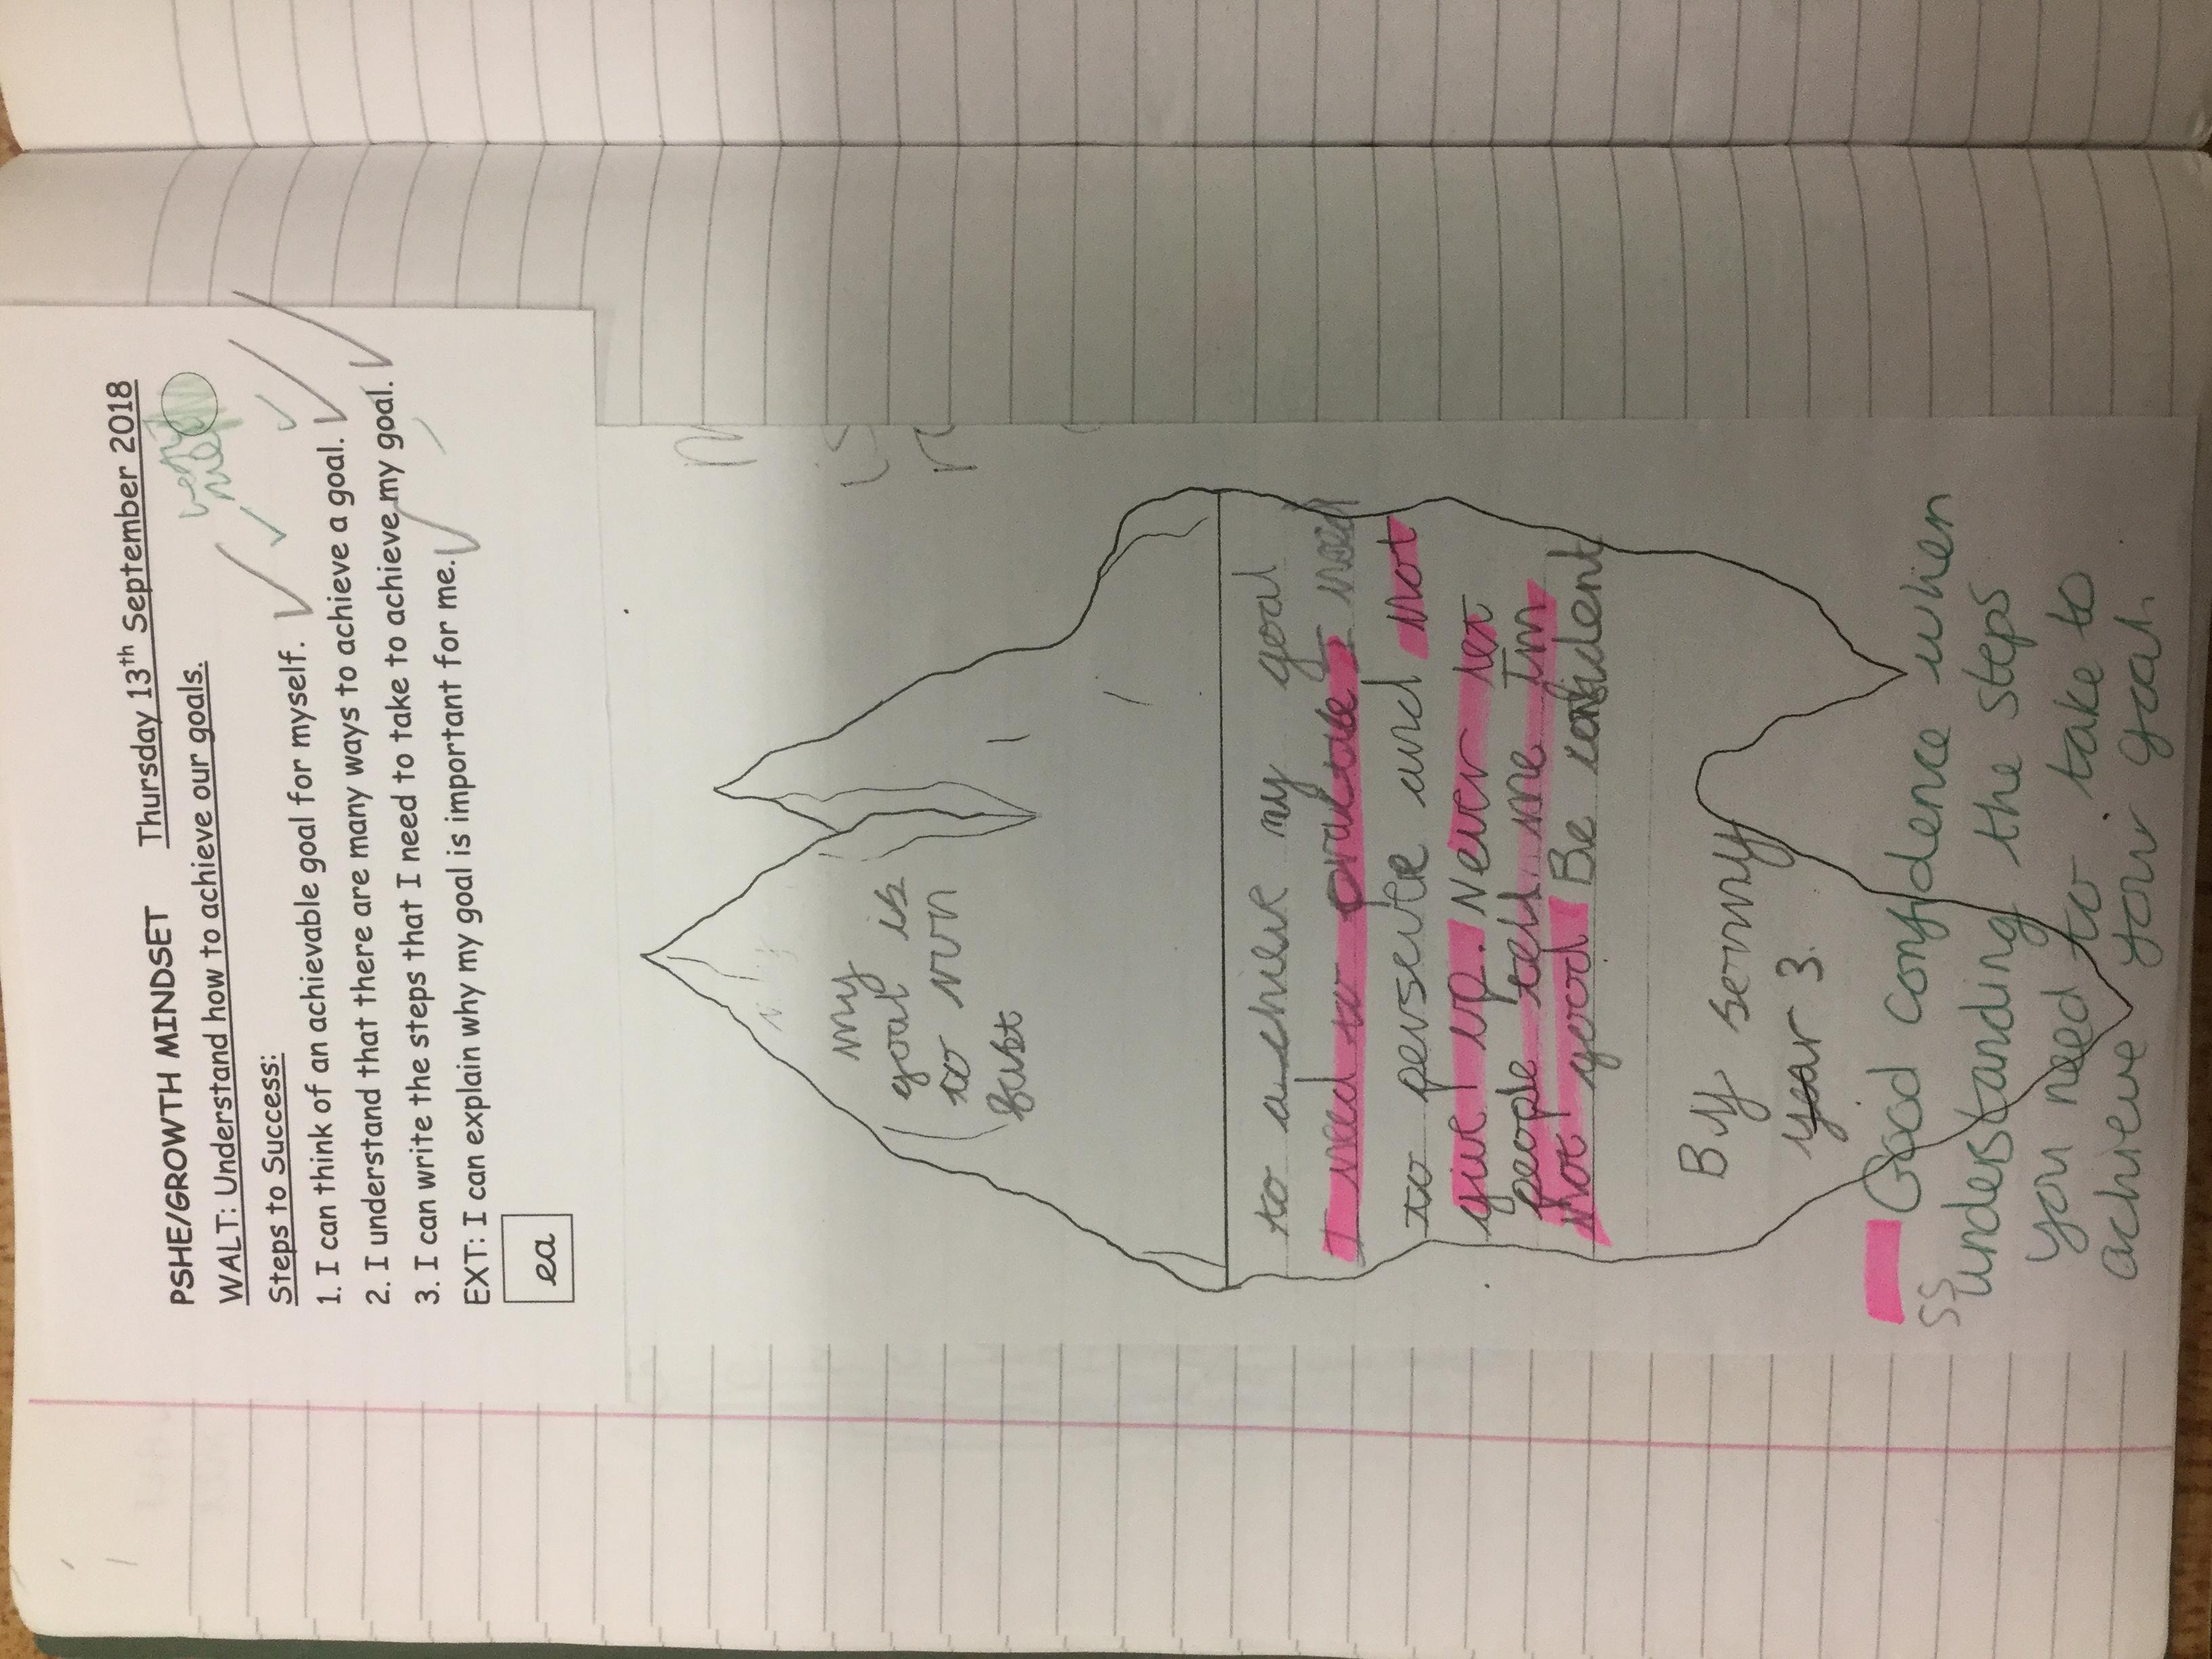 PSHE/GROWTH MINDSET Thursday 13th September 2018
WALT: Understand how to achieve our goals.
Steps to Success:
1. I can think of an achievable goal for myself.
2. I understand that there are many ways to achieve a goal.
3. I can write the steps that I need to take to achieve my goal.
EXT: I can explain why my goal is important for me.
ea
my
goal is
to run
fast
to achieve my goal
I need to practise I need
to perseve and not
give up. Never let
people tell me Im
not good Be confident
By
year 3.
Good confidence when
SS understanding the steps
you need to take to
achieve your goal.